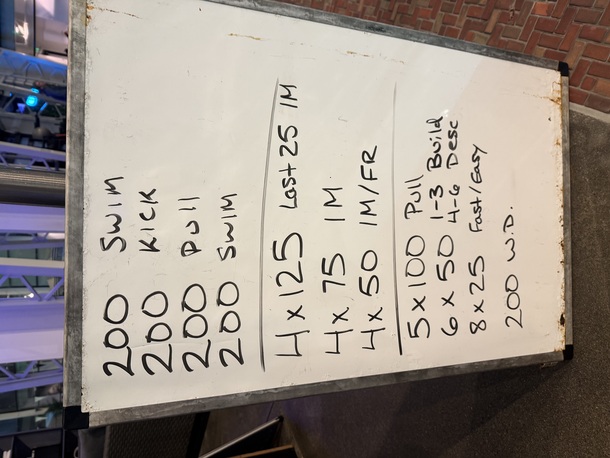 200 SWIM
200 KICK
200 PUll
200 SWIM
4 x 125 Last 25 IM
4 x 75 IM
4 x 50 IM/FR
5 x 100 Pull
6 x 50 1-3 Build
4-6 Desc
8 x 25 Fast/Easy
200 W.D.